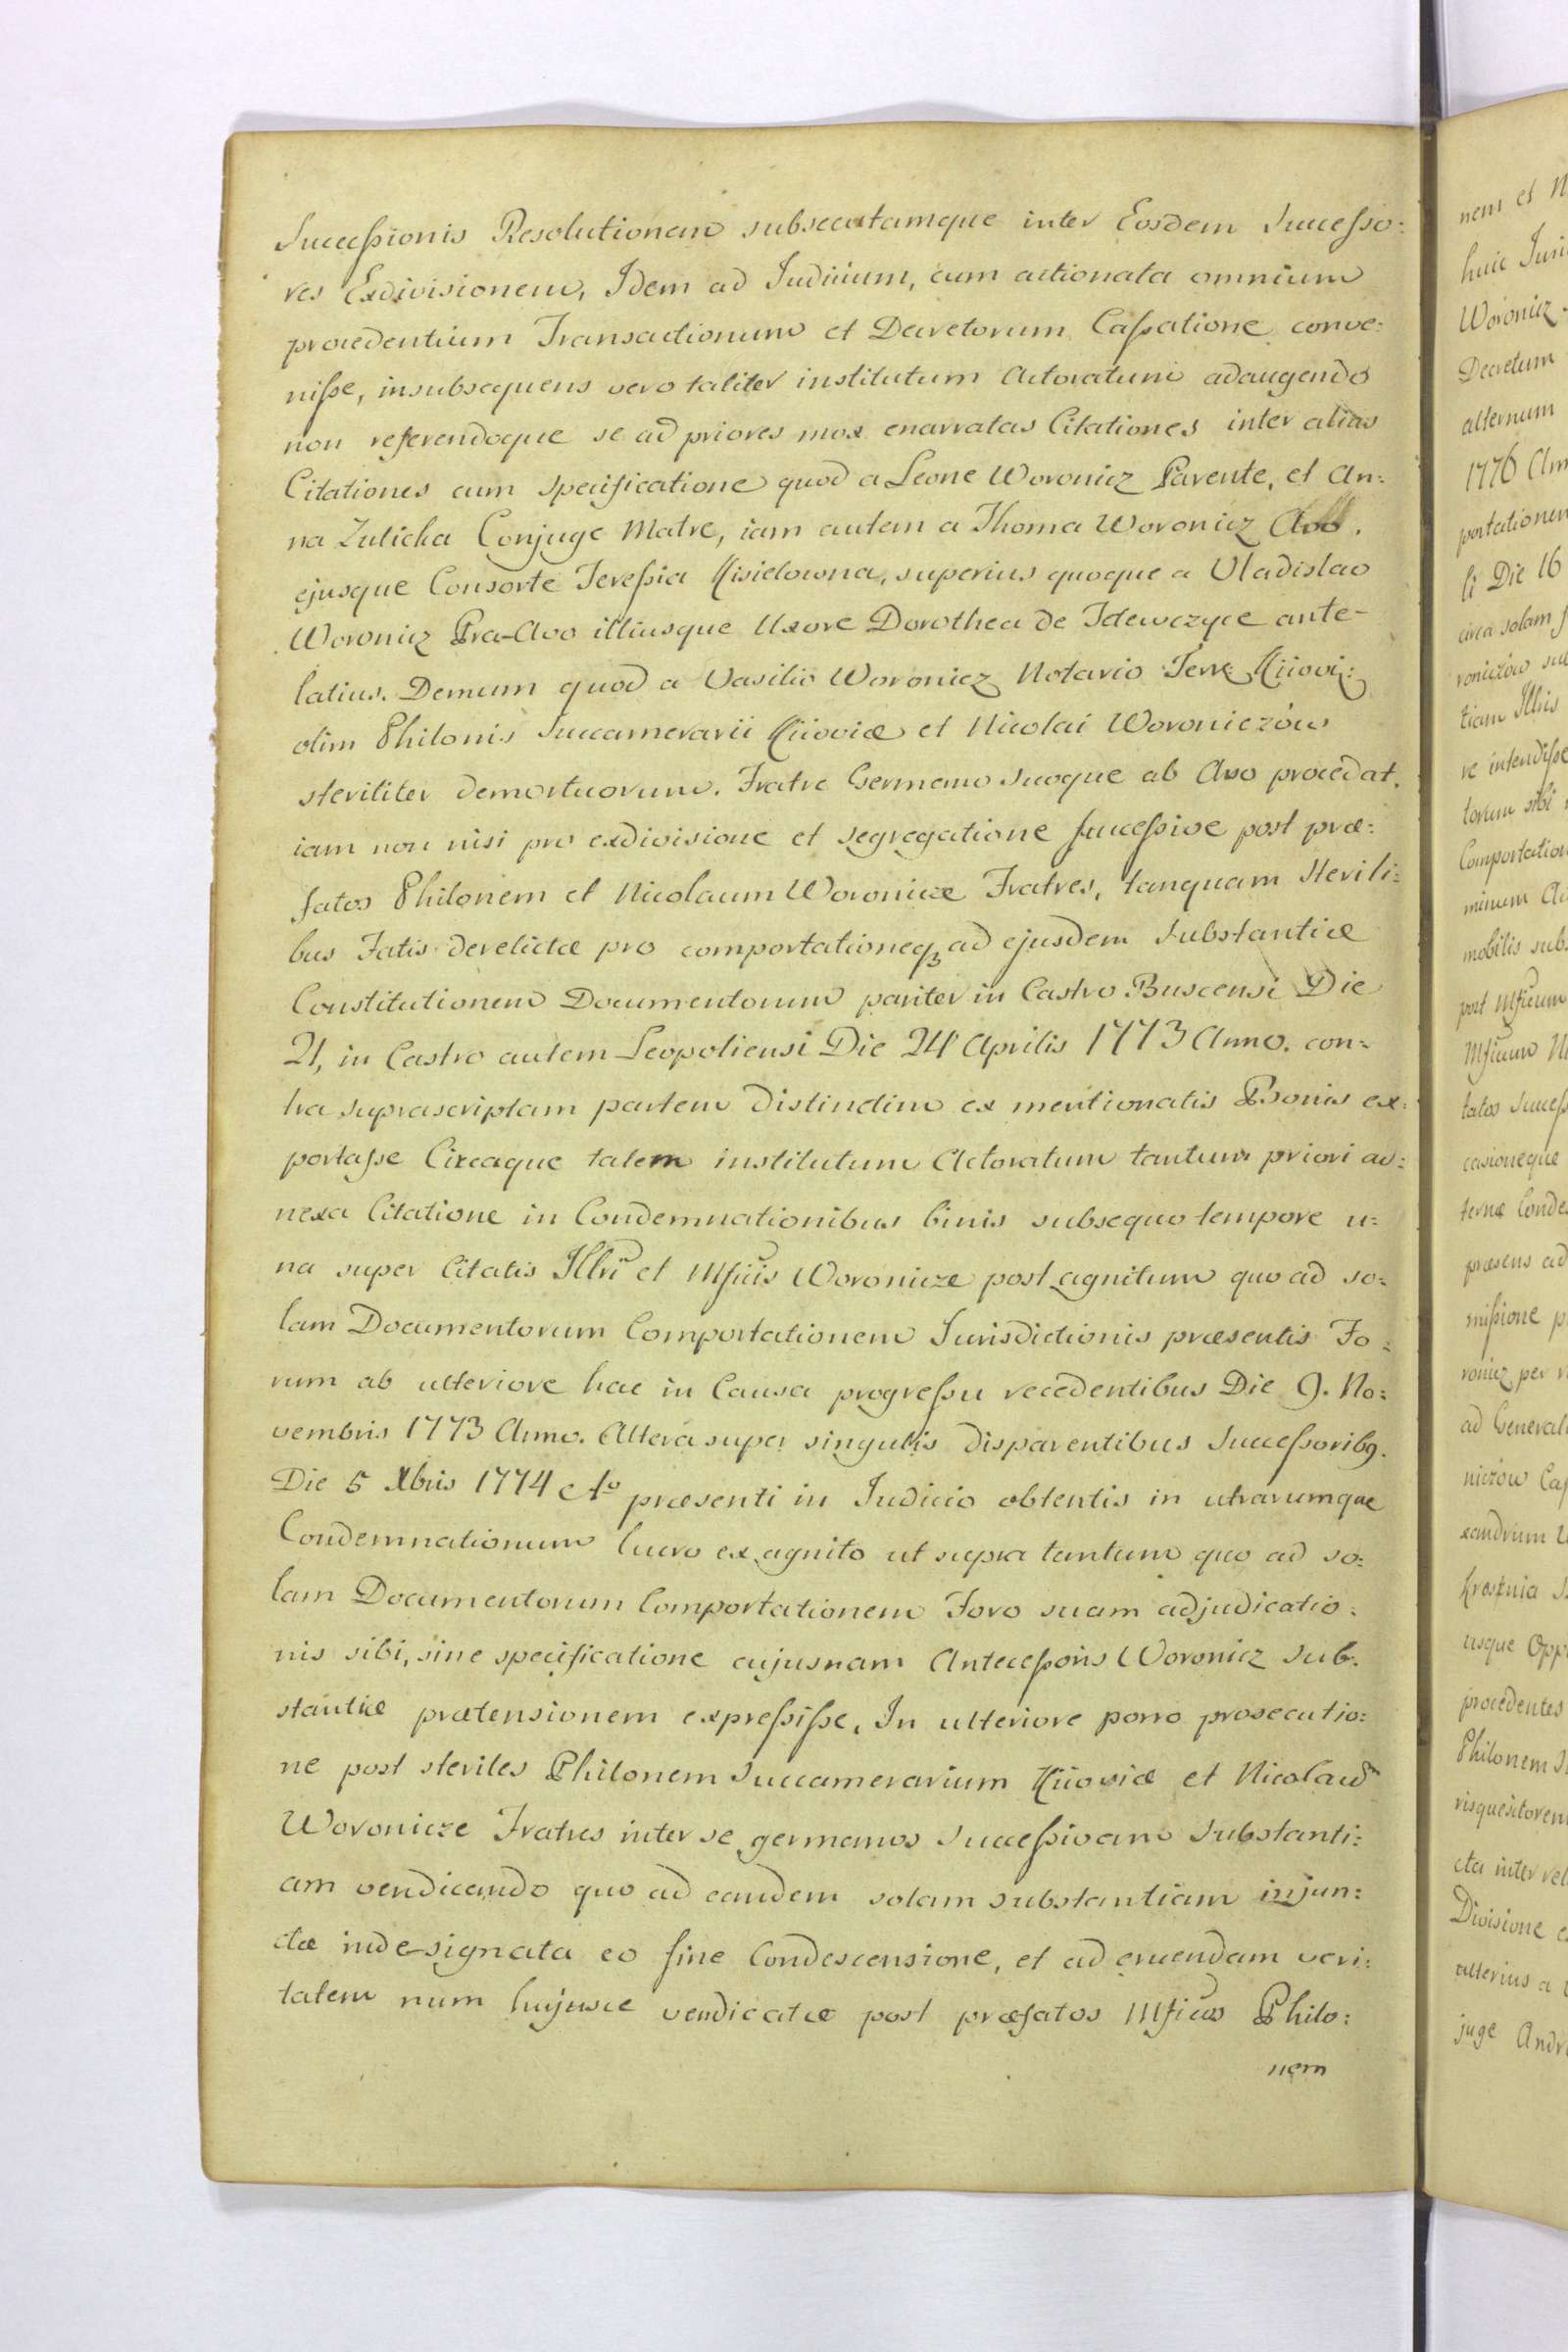 Successionis Resolutionem subsecutamque inter Eosdem Successo:
res Exdivisionem, Idem ad Judicium, cum actionata omnium
procedentium Transactionum et Decretorum Cassatione conve:
nisse, insubsequens vero taliter institutum Actoratum adaugendo
non referendoque se ad priores mox enarratas Citationes inter alias
Citationes cum specificatione quod a Leone Woronicz Parente, et An:
na Zulicka Conjuge Matre, iam autem a Thoma Woronicz Avo.
ejusque Consorte Teressia Kisielowna, superius quoque a Vladislao
Woronicz Pra-Avo illiusque Uxore Dorothea de Jelewczyce ante-
latius. Demum quod a Vasilio Woronicz Notario Terre Kiiovi:
olim Philonis Succamerarii Kiioviæ et Nicolai Woroniczów
steriliter demortuorum. Fratre Germano suoque ab Avo procedat.
iam non nisi pro exdivisione et segregatione successive post præ:
fatos Philonem et Nicolaum Woronicze Fratres, tanquam sterili:
bus Fatis derelictæ pro comportationeq₃ ad ejusdem Substantiæ
Constitutionem Documentorum pariter in Castro Buscensi Die
21, in Castro autem Leopoliensi Die 24 Aprilis 1773 Anno. con:
tra suprascriptam partem distinctim ex mentionatis Bonis ex:
portasse Circaque talem institutum Actoratum tantum priori ad:
nexa Citatione in Condemnationibus binis subsequo tempore u:
na super Citatis Illri et Mficis Woronicze post agnitum quo ad so:
lam Documentorum Comportationem Jurisdictionis præsentis Fo:
rum ab ulteriore hac in Causa progressu recedentibus Die 9. No:
vembris 1773 Anno. Altera super singulis disparentibus Successorib9.
Die 5 Xbris 1774 Ao præsenti in Judicio obtentis in utrarumque
Condemnationum lucro ex agnito ut supra tantum quo ad so:
lam Documentorum Comportationem Foro suam adjudicatio:
nis sibi, sine specificatione cujusnam Antecessoris Woronicz Sub:
stantiæ prætensionem expressisse, In ulteriore porro prosecutio:
ne post steriles Philonem Succamerarium Kiioviæ et Nicolaum
Woronicze Fratres inter se germanos Successivam Substanti:
am vendicando quo ad eandem solam substantiam injun:
ctæ inde signata eo fine Condescensione, et ad eruendam veri:
tatem num hujusce vendicatæ post præfatos Mficos Philo:
nem
nem et
huic
Woronicz
Decretum
alternum
1776
portationem
li Die 16
circa solam
roniczów
tiam Illris
re intendisse
torum sibi
Comportation
minum
mobilis sub
post Mficum
Mficum
tatos Success
casioneque
ternæ Conde
præsens ad
missione
ronicz per
ad General
niczów
xandrum
usque
procedentes
Philonem
cta inter
Divisione
ulterius a
juge